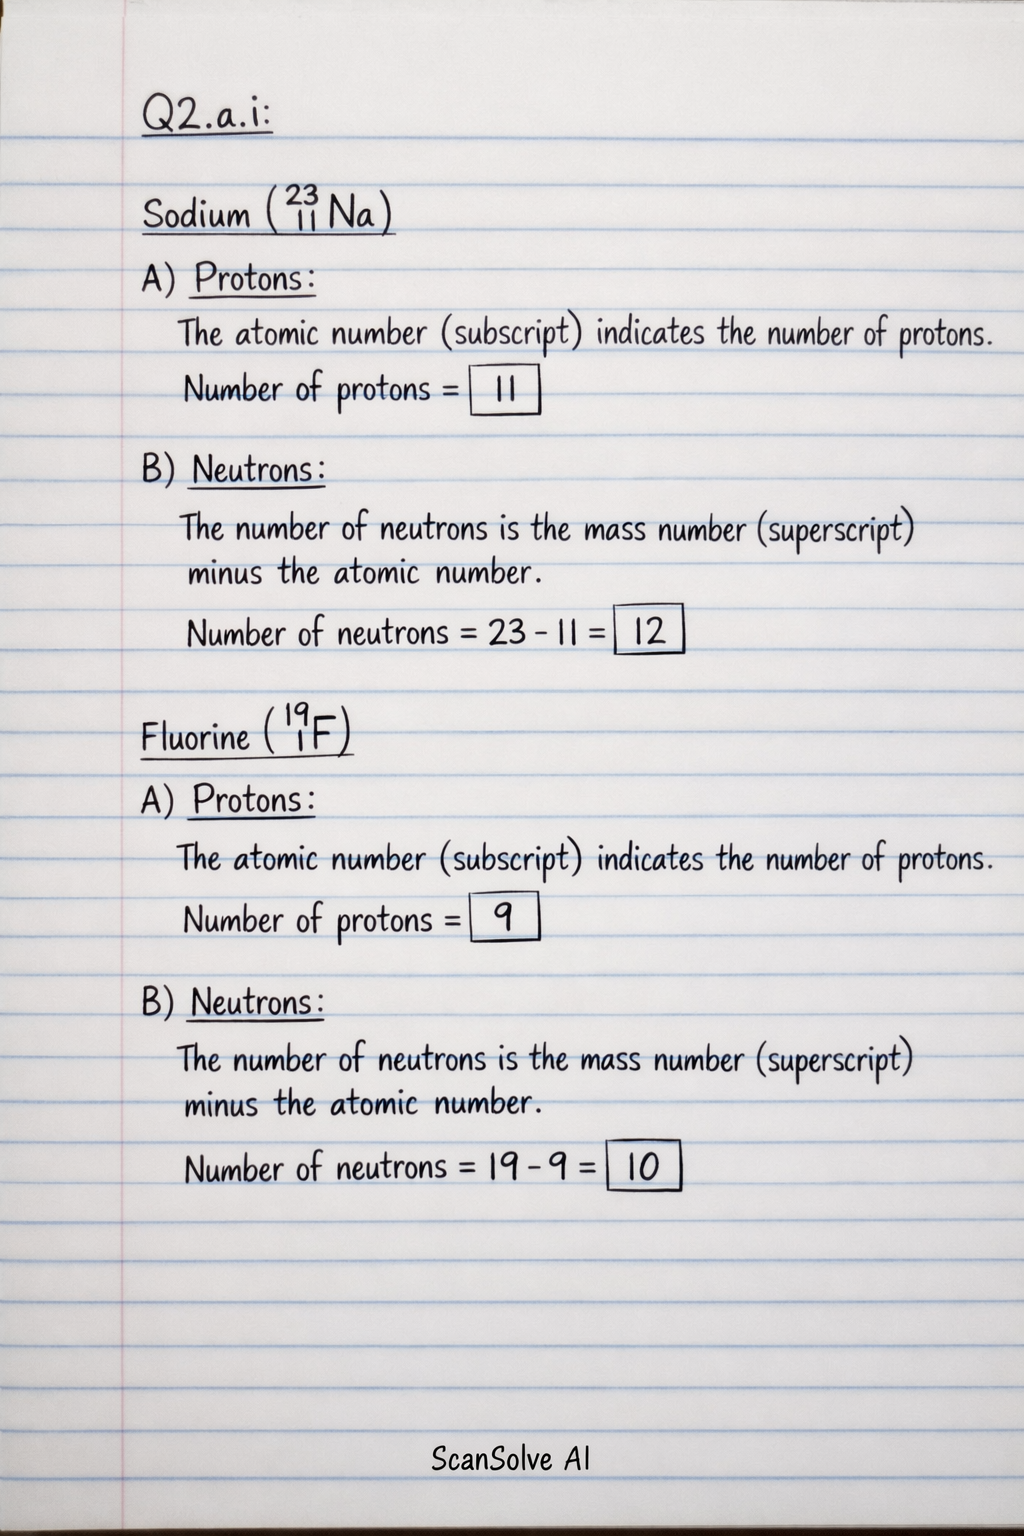 Q2.a.i:
Sodium (²³₁₁Na)
A) Protons:
The atomic number (subscript) indicates the number of protons.
Number of protons = 11
B) Neutrons:
The number of neutrons is the mass number (superscript)
minus the atomic number.
Number of neutrons = 23 - 11 = 12
Fluorine (¹⁹₁F)
A) Protons:
The atomic number (subscript) indicates the number of protons.
Number of protons = 9
B) Neutrons:
The number of neutrons is the mass number (superscript)
minus the atomic number.
Number of neutrons = 19 - 9 = 10
ScanSolve AI